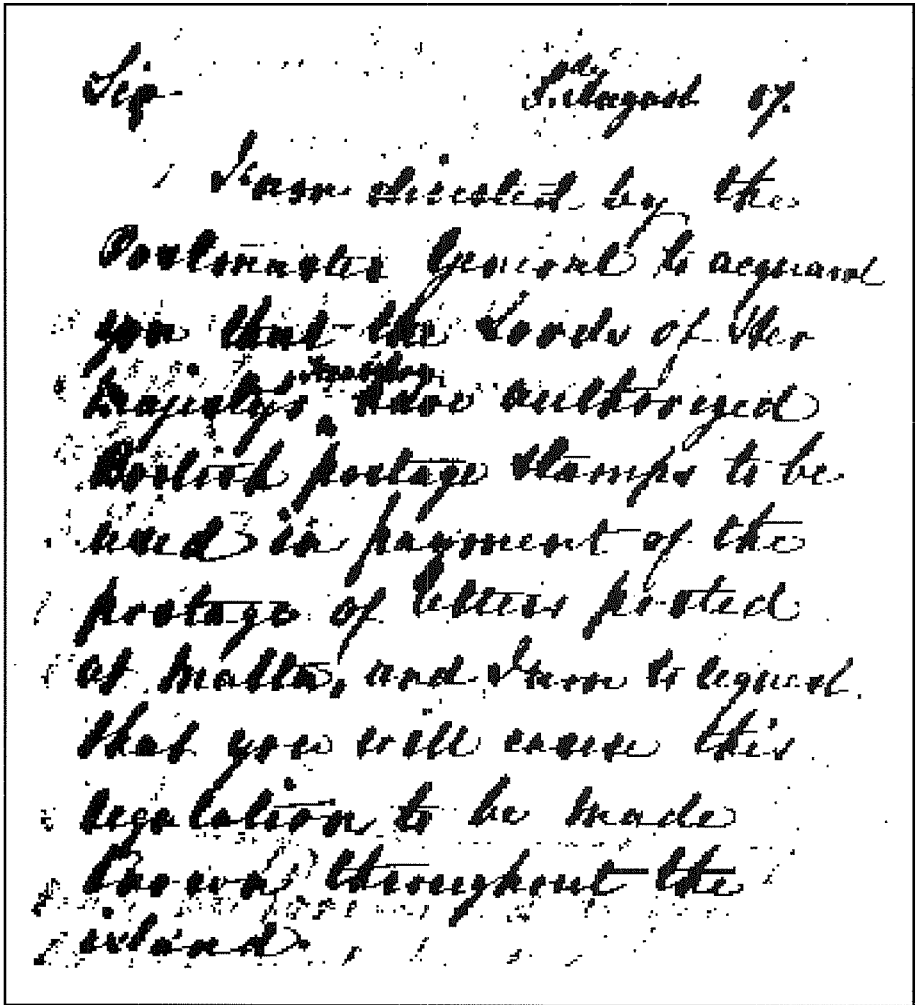 Sir August 57.
I am directed by the
Postmaster General to acquaint
you that the Lords of Her
Treasury
Majesty's have authorized
British postage stamps to be
used in payment of the
postage of letters posted
at Malta, and I am to request
that you will cause this
regulation to be made
known throughout the
island.